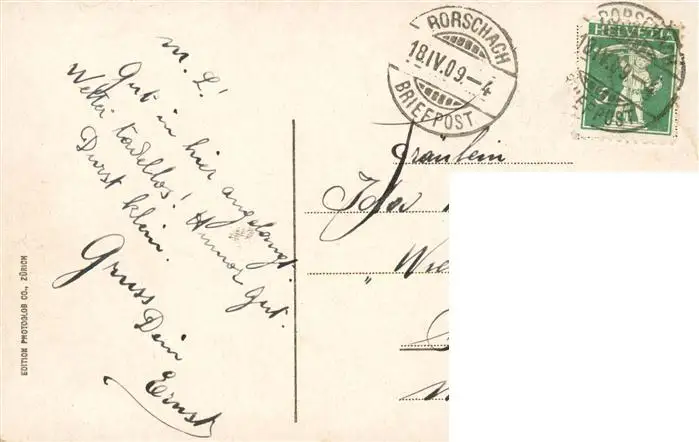 M. L!
Gut in hier angelangt.
Wetter tadellos! Humor gut.
Durst klein.
Gruss Dein
Ernst
EDITION PHOTOGLOB CO., ZÜRICH
RORSCHACH
18.IV.09.-4
BRIEFPOST
HELVETIA
RORSCH
18.IV.09.
BRIEFPOST
Fräulein
Ida
"